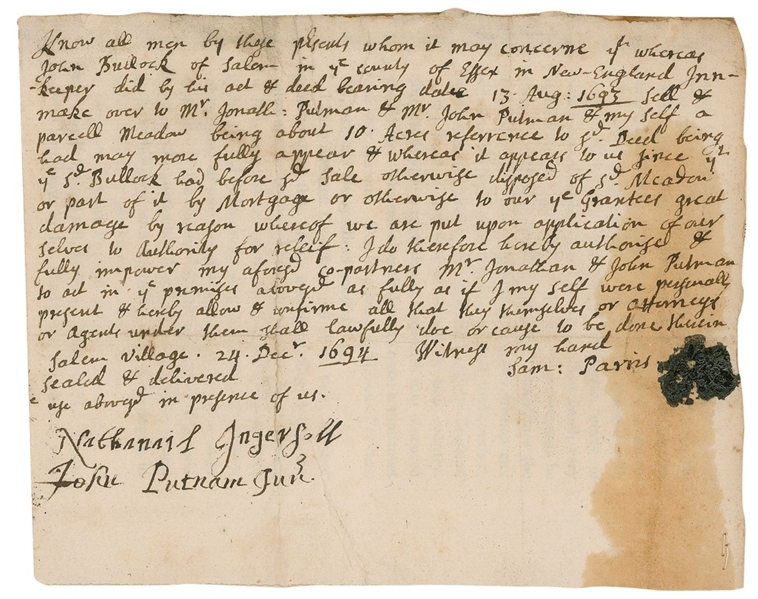 Know all men by these prsents whom it may concerne yt whereas
John Bullock of Salem in ye county of Essex in New-England Inn-
keeper did by his act & deed bearing date 13. Aug: 1693 sell &
make over to Mr. Jonath: Putman & Mr. John Putman & my self a
parcell Meadow being about 10. Acres referrence to sd. Deed being
had may more fully appear & whereas it appears to us since yt
ye sd. Bullock had before sd. sale otherwise disposed of sd. Meadow
or part of it by Mortgage or otherwise to our ye Grantees great
damage by reason whereof we are put upon application of our
selves to Authority for releif: I do therefore hereby authorise &
fully impower my aforesd co-partners Mr. Jonathan & John Putman
to act in ye premises abovesd as fully as if I my self were personally
present & hereby allow & confirme all that they themselves or attorneys
or Agents under them shall lawfully doe or cause to be done therein
Salem Village. 24. Decr. 1694 Witness my hand
Sealed & delivered Sam: Parris
use abovesd in presence of us.
Nathaniel Ingersoll
John Putnam Junr